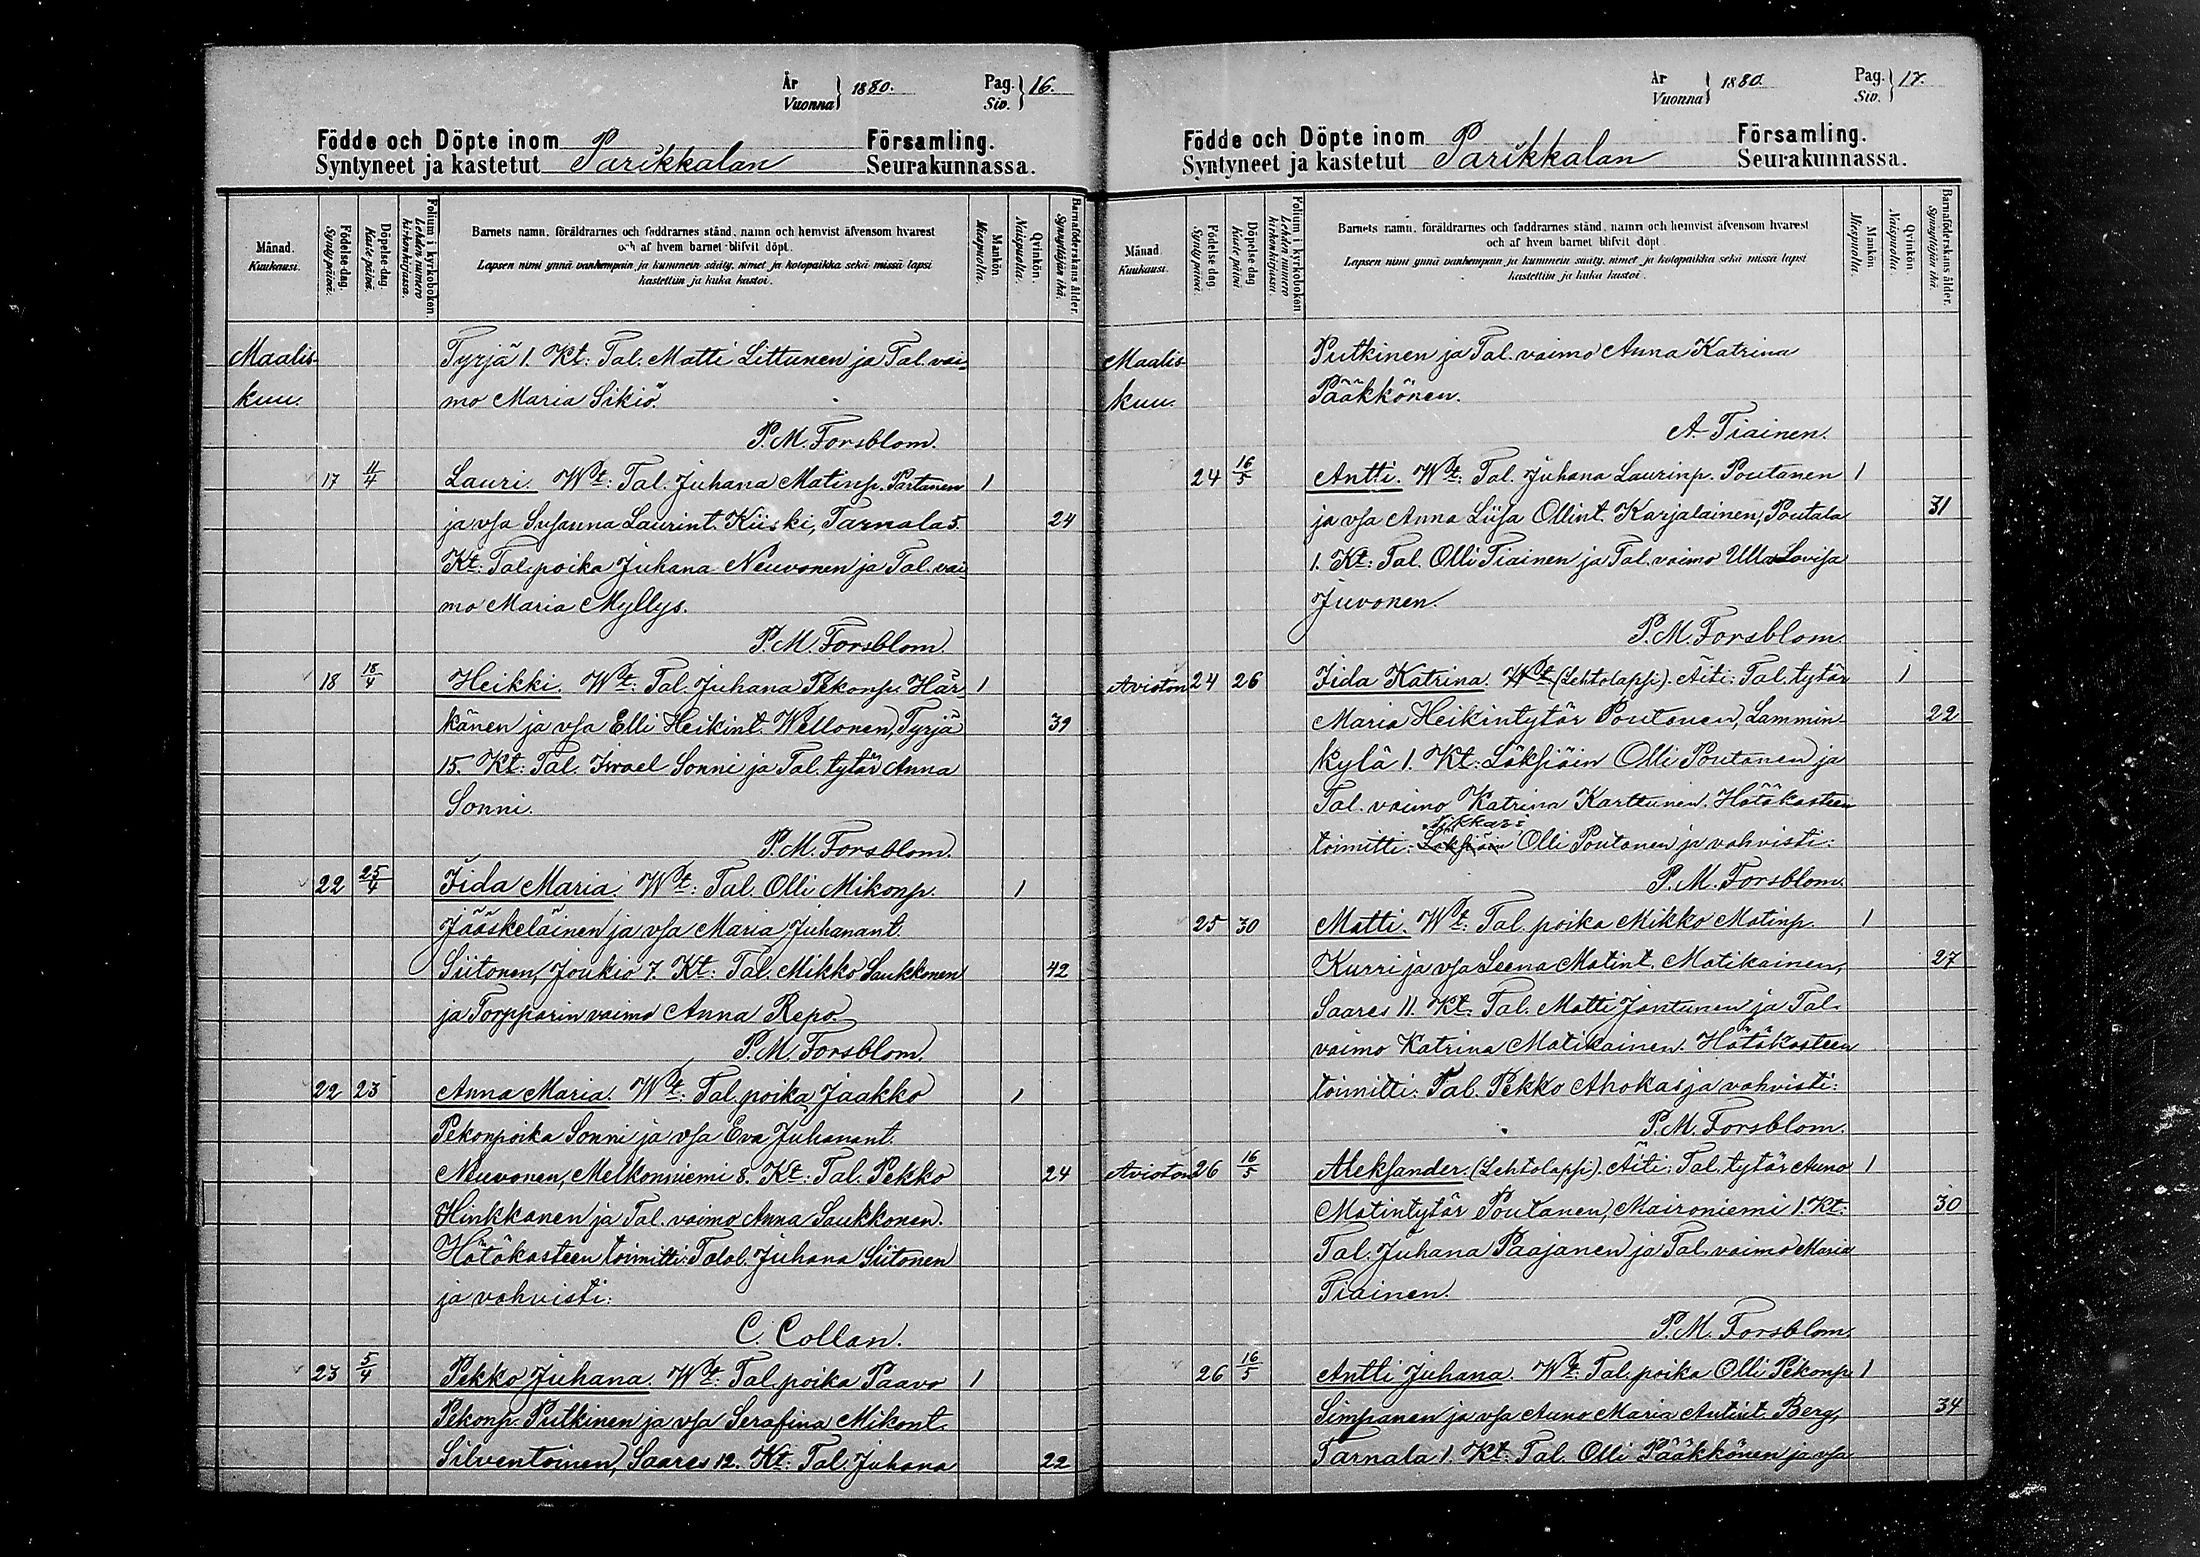 År
Vuonna} 1880. Pag.
Siv.} 16.
Födde och Döpte inom Församling.
Syntyneet ja kastetut Parikkalan Seurakunnassa.
Månad.
Kuukausi.
Födelse-dag.
Synty päivä.
Döpelse-dag.
Kaste päivä.
Folium i kyrkoboken.
Lehden numero kirkonkirjassa.
Barnets namn, föräldrarnes och faddrarnes stånd, namn och hemvist äfvensom hvarest
och af hvem barnet blifvit döpt.
Lapsen nimi ynnä vanhempain ja kummein sääty, nimet ja kotopaikka sekä missä lapsi
kastettiin ja kuka kastoi.
Mankön
Miespuolta.
Qvinkön.
Naispuolta.
Barnaföderskans ålder.
Synnyttäjän ikä.
Maalis- Tyrjä 1. Kt: Tal. Matti Littunen ja Tal. vai-
kuu. mo Maria Sikiö.
P. M. Forsblom.
17 11/4 Lauri. Wt: Tal. Juhana Matinp. Partanen 1
ja vsa Susanna Laurint. Kiiski, Tarnala 5. 24
Kt: Tal. poika Juhana Neuvonen ja Tal. vai-
mo Maria Myllys.
P. M. Forsblom.
18 18/4 Heikki. Wt: Tal. Juhana Pekonp. Här- 1
känen ja vsa Elli Heikint. Wellonen, Tyrjä 39
15. Kt: Tal. Israel Sonni ja Tal. tytär Anna
Sonni.
P. M. Forsblom.
22 25/4 Iida Maria. Wt: Tal. Olli Mikonp. 1
Jääskeläinen ja vsa Maria Juhanant.
Siitonen, Joukio 7. Kt: Tal. Mikko Saukkonen 42
ja Torpparin vaimo Anna Repo.
P. M. Forsblom.
22 23 Anna Maria. Wt: Tal. poika Jaakko 1
Pekonpoika Sonni ja vsa Eva Juhanant.
Neuvonen, Melkoniemi 8. Kt: Tal. Pekko 24
Hinkkanen ja Tal. vaimo Anna Saukkonen.
Hätäkasteen toimitti: Talol. Juhana Siitonen
ja vahvisti:
C. Collan.
23 5/4 Pekko Juhana. Wt: Tal. poika Paavo 1
Pekonp. Putkinen ja vsa Serafina Mikont.
Silventoinen, Saares 12. Kt: Tal. Juhana 22
År
Vuonna} 1880. Pag.
Siv.} 17.
Födde och Döpte inom Församling.
Syntyneet ja kastetut Parikkalan Seurakunnassa.
Månad.
Kuukausi.
Födelse-dag.
Synty päivä.
Döpelse-dag.
Kaste päivä.
Folium i kyrkoboken.
Lehden numero kirkonkirjassa.
Barnets namn, föräldrarnes och faddrarnes stånd, namn och hemvist äfvensom hvarest
och af hvem barnet blifvit döpt.
Lapsen nimi ynnä vanhempain ja kummein sääty, nimet ja kotopaikka sekä missä lapsi
kastettiin ja kuka kastoi.
Mankön
Miespuolta.
Qvinkön.
Naispuolta.
Barnaföderskans ålder.
Synnyttäjän ikä.
Maalis- Putkinen ja Tal. vaimo Anna Katrina
kuu. Pääkkönen.
A. Tiainen.
24 16/5 Antti. Wt: Tal. Juhana Laurinp. Poutanen 1
ja vsa Anna Liisa Ollint. Karjalainen, Poutala 31
1. Kt: Tal. Olli Tiainen ja Tal. vaimo Ulla Lovisa
Juvonen.
P. M. Forsblom.
Avioton 24 26 Iida Katrina. Wt (Lehtolapsi). Äiti: Tal. tytär 1
Maria Heikintytär Poutanen, Lammin- 22
kylä 1. Kt: Läksiäin Olli Poutanen ja
Tal. vaimo Katrina Karttunen. Hätäkasteen
Nikkari
toimitti: Läksiäin Olli Poutanen ja vahvisti:
P. M. Forsblom.
25 30 Matti. Wt: Tal. poika Mikko Matinp. 1
Kurri ja vsa Leena Matint. Matikainen, 27
Saares 11. Kt: Tal. Matti Jantunen ja Tal.
vaimo Katrina Matikainen. Hätäkasteen
toimitti: Tal. Pekko Ahokas ja vahvisti:
P. M. Forsblom.
Avioton 26 16/5 Aleksander. (Lehtolapsi) Äiti: Tal. tytär Anna 1
Matintytär Poutanen, Maironiemi 1. Kt: 30
Tal. Juhana Paajanen ja Tal. vaimo Maria
Tiainen.
P. M. Forsblom.
26 16/5 Antti Juhana. Wt: Tal. poika Olli Pekonp. 1
Simpanen ja vsa Anna Maria Antint. Berg, 34
Tarnala 1. Kt: Tal. Olli Pääkkönen ja vsa